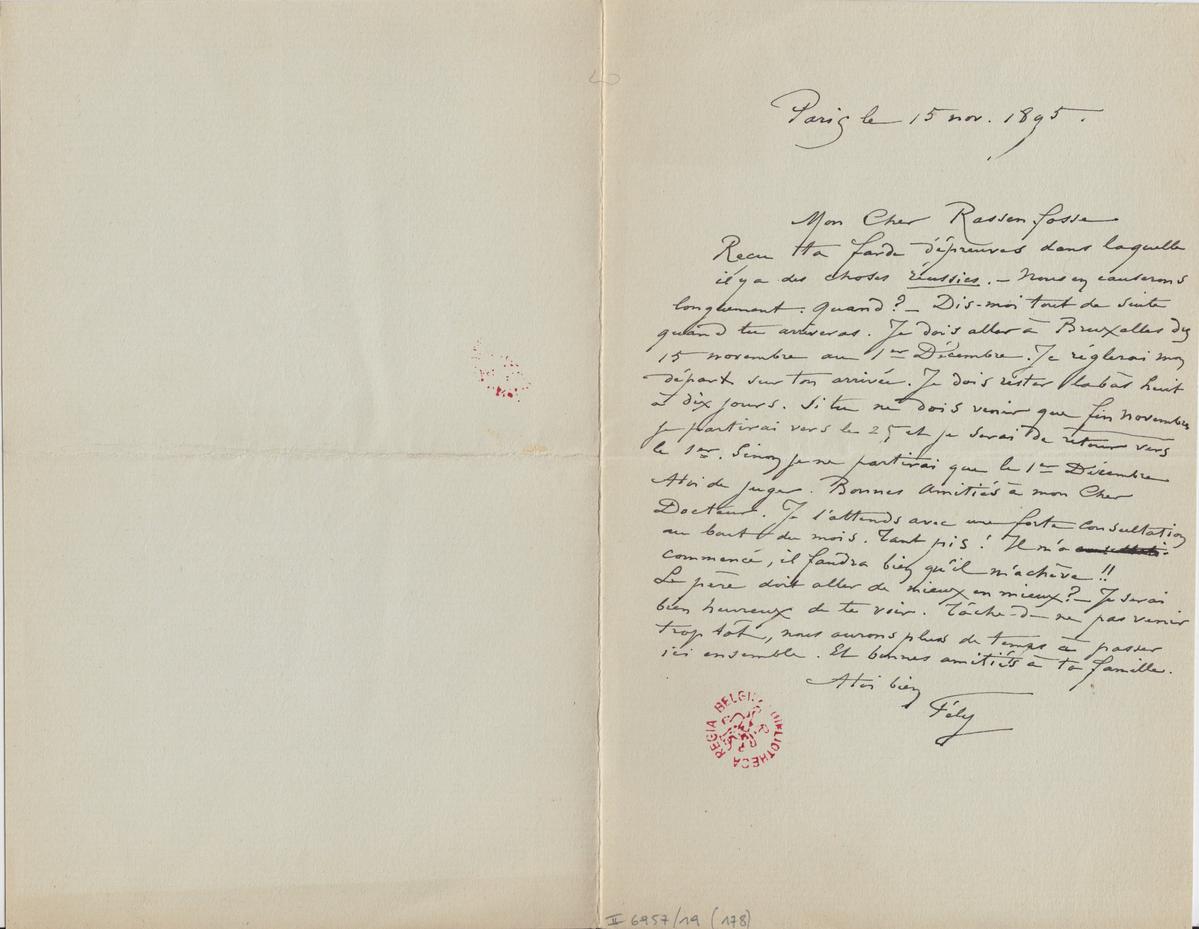 Paris le 15 nov. 1895.
Mon Cher Rassenfosse
Reçu ta farde d'épreuves dans laquelle
il y a des choses réussies. – Nous en causerons
longuement. Quand? – Dis-moi tout de suite
quand tu arriveras. Je dois aller à Bruxelles du
15 novembre au 1er Décembre. Je réglerai mon
départ sur ton arrivée. Je dois rester labàs huit
à dix jours. Si tu ne dois venir que fin novembre
je partirai vers le 25 et je serai de retour vers
le 1er. Sinon je ne partirai que le 1er Décembre
A toi de juger. Bonnes Amitiés à mon Cher
Docteur. Je l'attends avec une forte consultation
au bout du mois. Tant pis! Il m'a
commencé, il faudra bien qu'il m'achève!!
Le père doit aller de mieux en mieux? – Je serai
bien heureux de te voir. Tâche de ne pas venir
trop tôt, nous aurons plus de temps à passer
ici ensemble. Et bonnes amitiés à ta famille.
A toi bien
Fély
REGIA BELGICA BIBLIOTHECA
II 6957/19 (178)